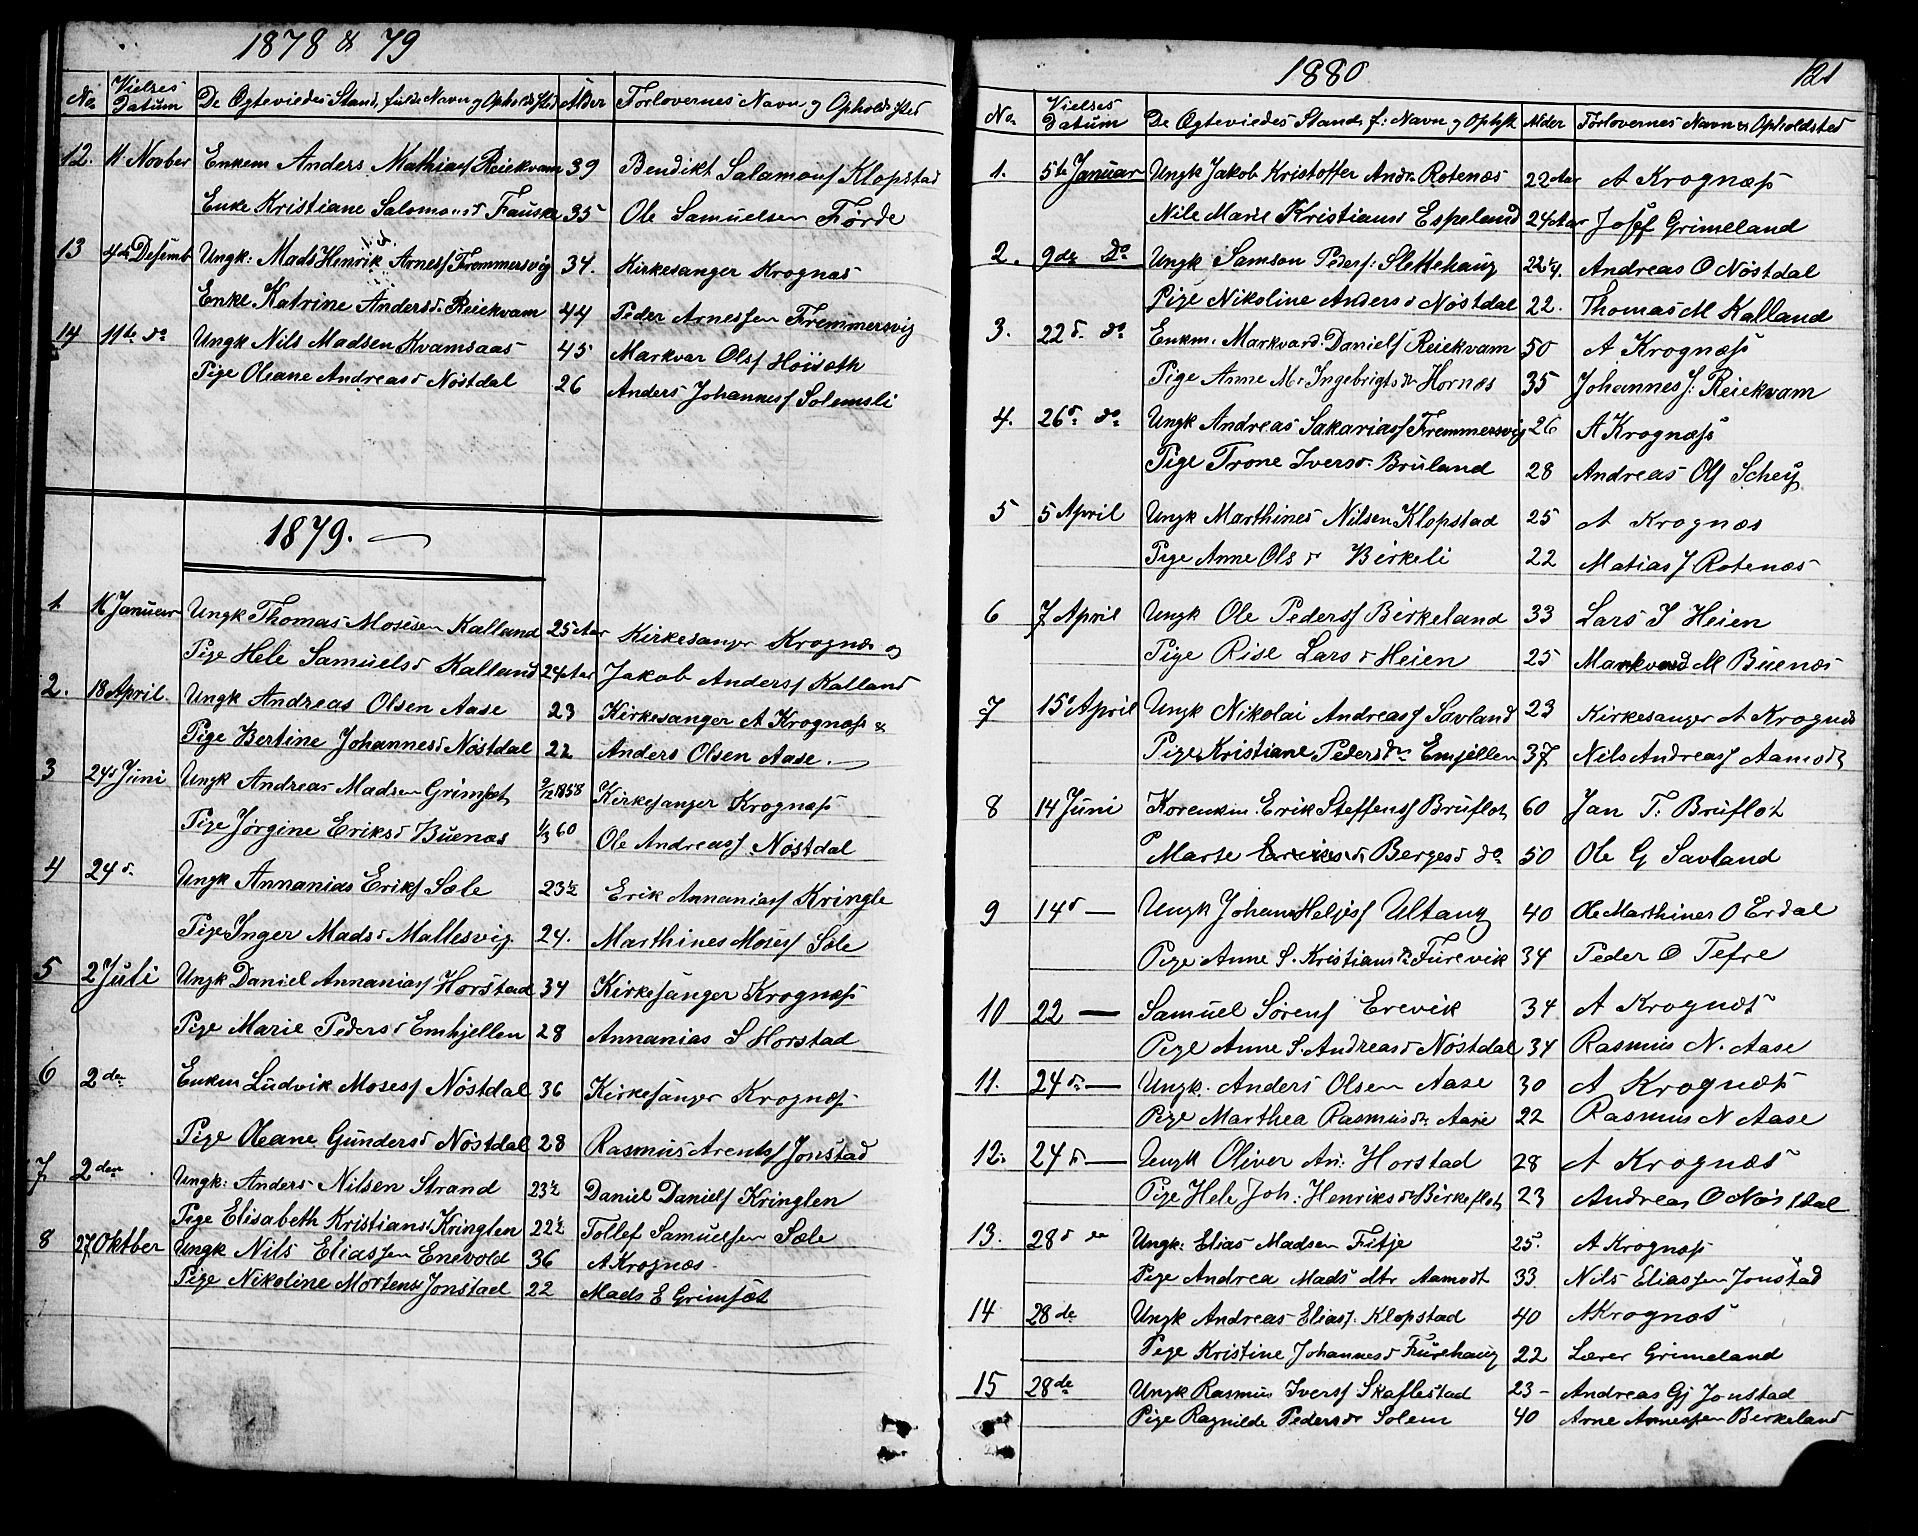 1878 & 79
No. Vielses Datum De Ægteviedes Stand, fulde Navn og Opholdssted Alder Forlovernes Navn og Opholdssted
12. 11 Novber Enkem Anders Mathiasf Reiekvam 39 Bendikt Salamonsf Klopstad
Enke Kristiane Salomonsd Fauske 35 Ole Samuelsen Førde
13 4de Desemb Ungk: Mads Henrik Arnesf Frommersvig 34. Kirkesanger Krognæs
Enke Katrine Andersd. Reiekvam 44 Peder Arnessen Fremmersvig
14 11te do Ungk Nils Madsen Kvamsaas 45 Markvar Olsf Höiseth
Pige Oleane Andreasd Nöstdal 26 Anders Johannesf Solemsli
1879.
1. 16 Januar Ungk Thomas Mosesen Kalland 25 Aar Kirkesanger Krognæs og
Pige Hele Samuelsd Kalland 24 Aar Jakob Andersf Kalland
2. 18 April. Ungk Andreas Olsen Aase 23 Kirkesanger A Krognæss &
Pige Bertine Johannesd Nöstdal 22 Anders Olsen Aase.
3 24d Juni Ungk Andreas Madsen Grimset 9/12 1858 Kirkesanger Krognæss
Pige Jørgine Eriksd Buenæs 1/3 60 Ole Andreasf Nöstdal
4 24 d. Ungk Annanias Eriksf Sæle 23 1/2 Erik Annaniasf Kringle
Pige Inger Madsd Mallesvig. 24. Marthines Mosesf Sæle
5 2 Juli Ungk Daniel Annaniasf Horstad 34 Kirkesanger Krognæss
Pige Marie Pedersd Emhjellen 28 Annanias S Horstad
6 2den Enkem Ludvik Mosesf Nöstdal 36 Kirkesanger Krognæss
Pige Oleane Gundersd Nöstdal 28 Rasmus Arentsf Jonstad
7 2den Ungk: Anders Nilsen Strand 23 1/2 Daniel Danielsf Kringlen
Pige Elisabeth Kristiansd Kringlen 22 1/2 Tollef Samuelsen Sæle
8 27 Oktber Ungk Nils Eliassen Enevold 36 A Krognæs
Pige Nikoline Mortensd Jonstad 22 Mads E Grimset
1880 121
No. Vielses Datum De Ægteviedes Stands f: Navn og Ophst Alder Forlovernes Navn & Opholdsted
1. 5te Januar Ungk Jakob Kristoffer Andr. Rotenæs 22 Aar A Krognæss
Nile Marie Kristiansd Espeland 24 Aar Josef Grimeland
2. 9de do Ungk Samson Pedersf: Slettehaug 22 1/4. Andreas O Nöstdal
Pige Nikoline Andersd Nöstdal 22. Thomas M Kalland
3. 22 d. do Enkm. Markvard Danielsf Reiekvam 50 A Krognæss
Pige Anne M. Ingebrigtsdr Hornæs 35 Johannes J. Reiekvam
4. 26 d. do Ungk Andreas Sakariasf Fremmersvig 26 A Krognæss
Pige Trone Iversd. Bruland 28 Andreas Olsf Schey
5 5 April Ungk Marthines Nilsen Klopstad 25 A Krognæs
Pige Anne Olsd Birkeli 22 Matias J Rotenæs
6 7 April Ungk Ole Pedersf Birkeland 33 Lars I Heien
Pige Rise Larsd Heien 25 Markvard M Buenæs
7 15d April Ungk Nikolai Andreasf Savland 23 Kirkesanger A Krognæs
Pige Kristiane Pedersdr Emjellen 37 Nils Andreasf Aamodt
8 14 Juni Korenkm. Erik Steffensf Bruflot 60 Jan T. Bruflot
P Marte Bergesd do 50 Ole G Savland
9 14d — Ungk Johan Heljesf Ultang 40 Ole Marthines O Erdal
Pige Anne S. Kristiansdr Furevik 34 Peder O Tefre
10 22 — Samuel Sörensf Erevik 34 A Krognæs
Pige Anne S. Andreasd Nöstdal 34 Rasmus N. Aase
11. 24 d. — Ungk. Anders Olsen Aase 30 A Krognæs
Pige Marthea Rasmusdr. Aase 22 Rasmus N Aase
12. 24 d — Ungk Oliver An: Horstad 28 A Krognæs
Pige Hele Joh: Henriksdr Birkeflot 23 Andreas O Nöstdal
13. 28d de Ungk: Elias Madsen Fitje 25. A Krognæss
Pige Andrea Mads dtr Aamodt 33 Nils Eliassen Jonstad
14 28de Ungk Andreas Eliasf. Klopstad 40 A Krognæs
Pige Kristine Johannesd Furehaug 22 Lærer Grimeland
15 28de Ungk Rasmus Iversf Skaflestad 23 — Andreas Gj Jonstad
Pige Ragnilde Pedersdr Solem 40 Arne Arnessen Berkeland